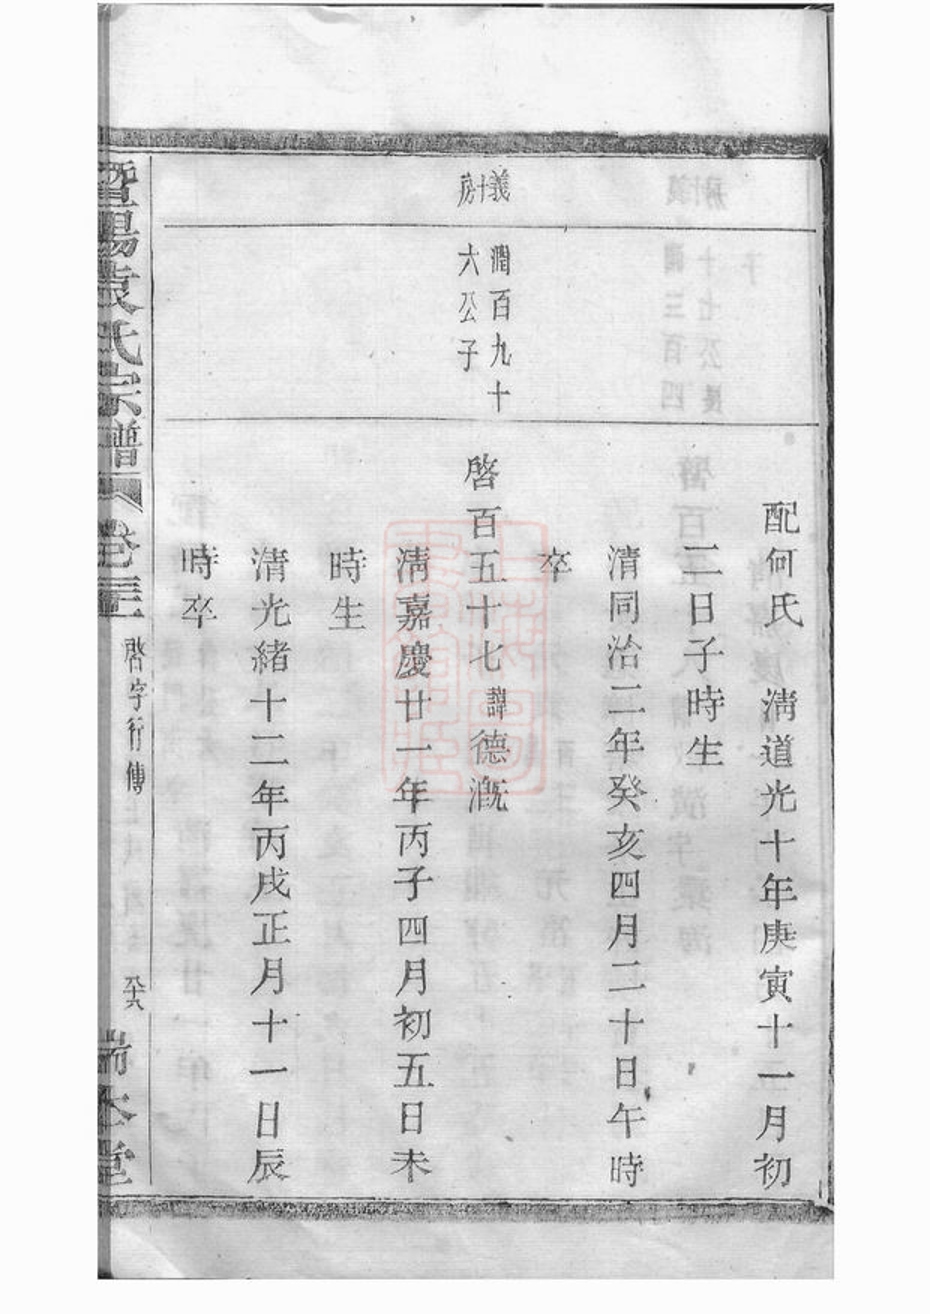 配何氏　清道光十年庚寅十一月初
二日子時生
清同治二年癸亥四月二十日午時
卒
義十房
潤百九十
六公子
啓百五十七諱德漑
清嘉慶廿一年丙子四月初五日未
時生
清光緒十二年丙戌正月十一日辰
時卒
暨陽袁氏宗譜
啓字行傳
瑞本堂